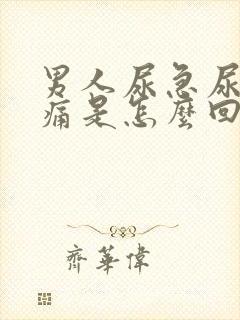 男人尿急尿
痛是怎麼回
齊華偉